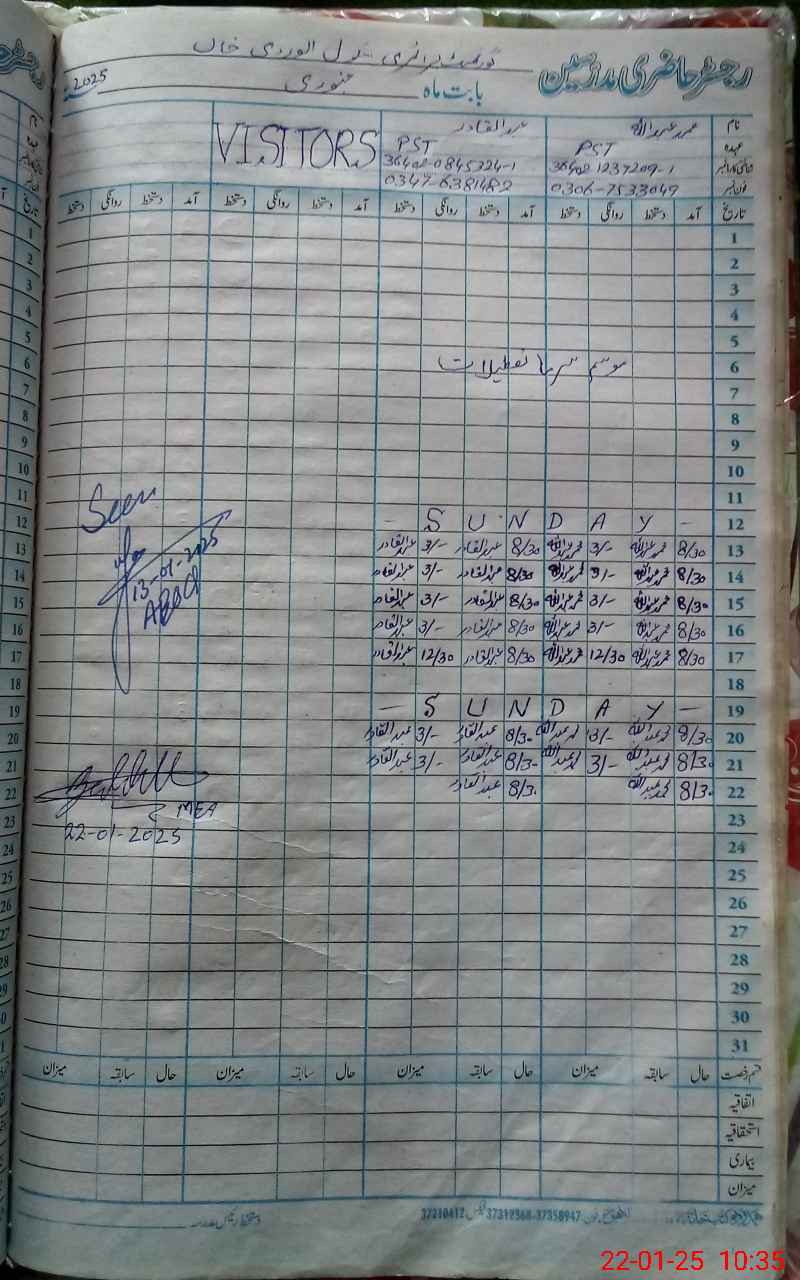 رجسٹر حاضری مدرسین گورنمنٹ پرائمری سکول الہ وردی خاں
بابت ماہ جنوری 2025
نام محمد عبداللہ عبدالقادر VISITORS
عہدہ PST PST
شناختی کارڈ نمبر 36402-1237209-1 36402-0845324-1
فون نمبر 0306-7533049 0347-6381482
تاریخ آمد دستخط روانگی دستخط آمد دستخط روانگی دستخط آمد دستخط روانگی دستخط آمد دستخط روانگی دستخط
1
2
3
4
5
6 موسم سرما تعطیلات
7
8
9
10
11
Seen
12 - S U N D A Y -
13 8/30 محمد عبداللہ 3/- محمد عبداللہ 8/30 عبدالقادر 3/- عبدالقادر
14 8/30 محمد عبداللہ 3/- محمد عبداللہ 8/30 عبدالقادر 3/- عبدالقادر
13-01-2025
15 8/30 محمد عبداللہ 3/- محمد عبداللہ 8/30 عبدالقادر 3/- عبدالقادر
16 8/30 محمد عبداللہ 3/- محمد عبداللہ 8/30 عبدالقادر 3/- عبدالقادر
17 8/30 محمد عبداللہ 12/30 محمد عبداللہ 8/30 عبدالقادر 12/30 عبدالقادر
18
19 - S U N D A Y -
20 8/30 محمد عبداللہ 3/- محمد عبداللہ 8/30 عبدالقادر 3/- عبدالقادر
21 8/30 محمد عبداللہ 3/- محمد عبداللہ 8/30 عبدالقادر 3/- عبدالقادر
22 8/30 محمد عبداللہ 8/30 عبدالقادر
MEA
23
22-01-2025
24
25
26
27
28
29
30
31
قسم رخصت حال سابقہ میزان حال سابقہ میزان حال سابقہ میزان حال سابقہ میزان
اتفاقیہ
استحقاقیہ
بیماری
میزان
37358947-37312368 فیکس 37210412
دستخط رئیس مدرسہ
22-01-25 10:35